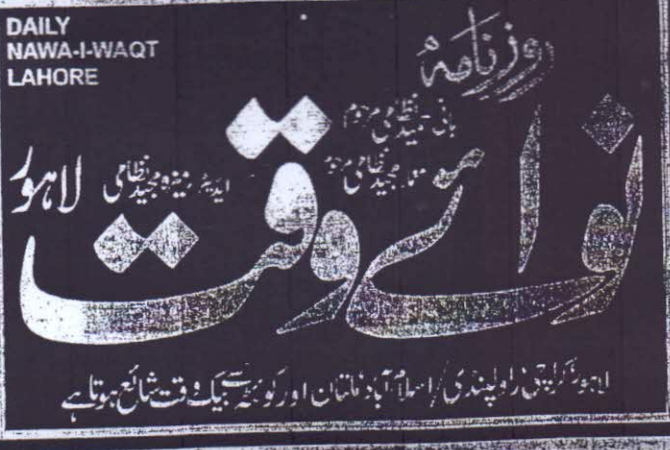 DAILY
NAWA-I-WAQT
LAHORE
روزنامہ
نوائے وقت
بانی حمید نظامی مرحوم
معمار مجید نظامی مرحوم
ایڈیٹر رمیزہ مجید نظامی
لاہور
لاہور، کراچی، راولپنڈی/اسلام آباد، ملتان اور کوئٹہ سے بیک وقت شائع ہوتا ہے